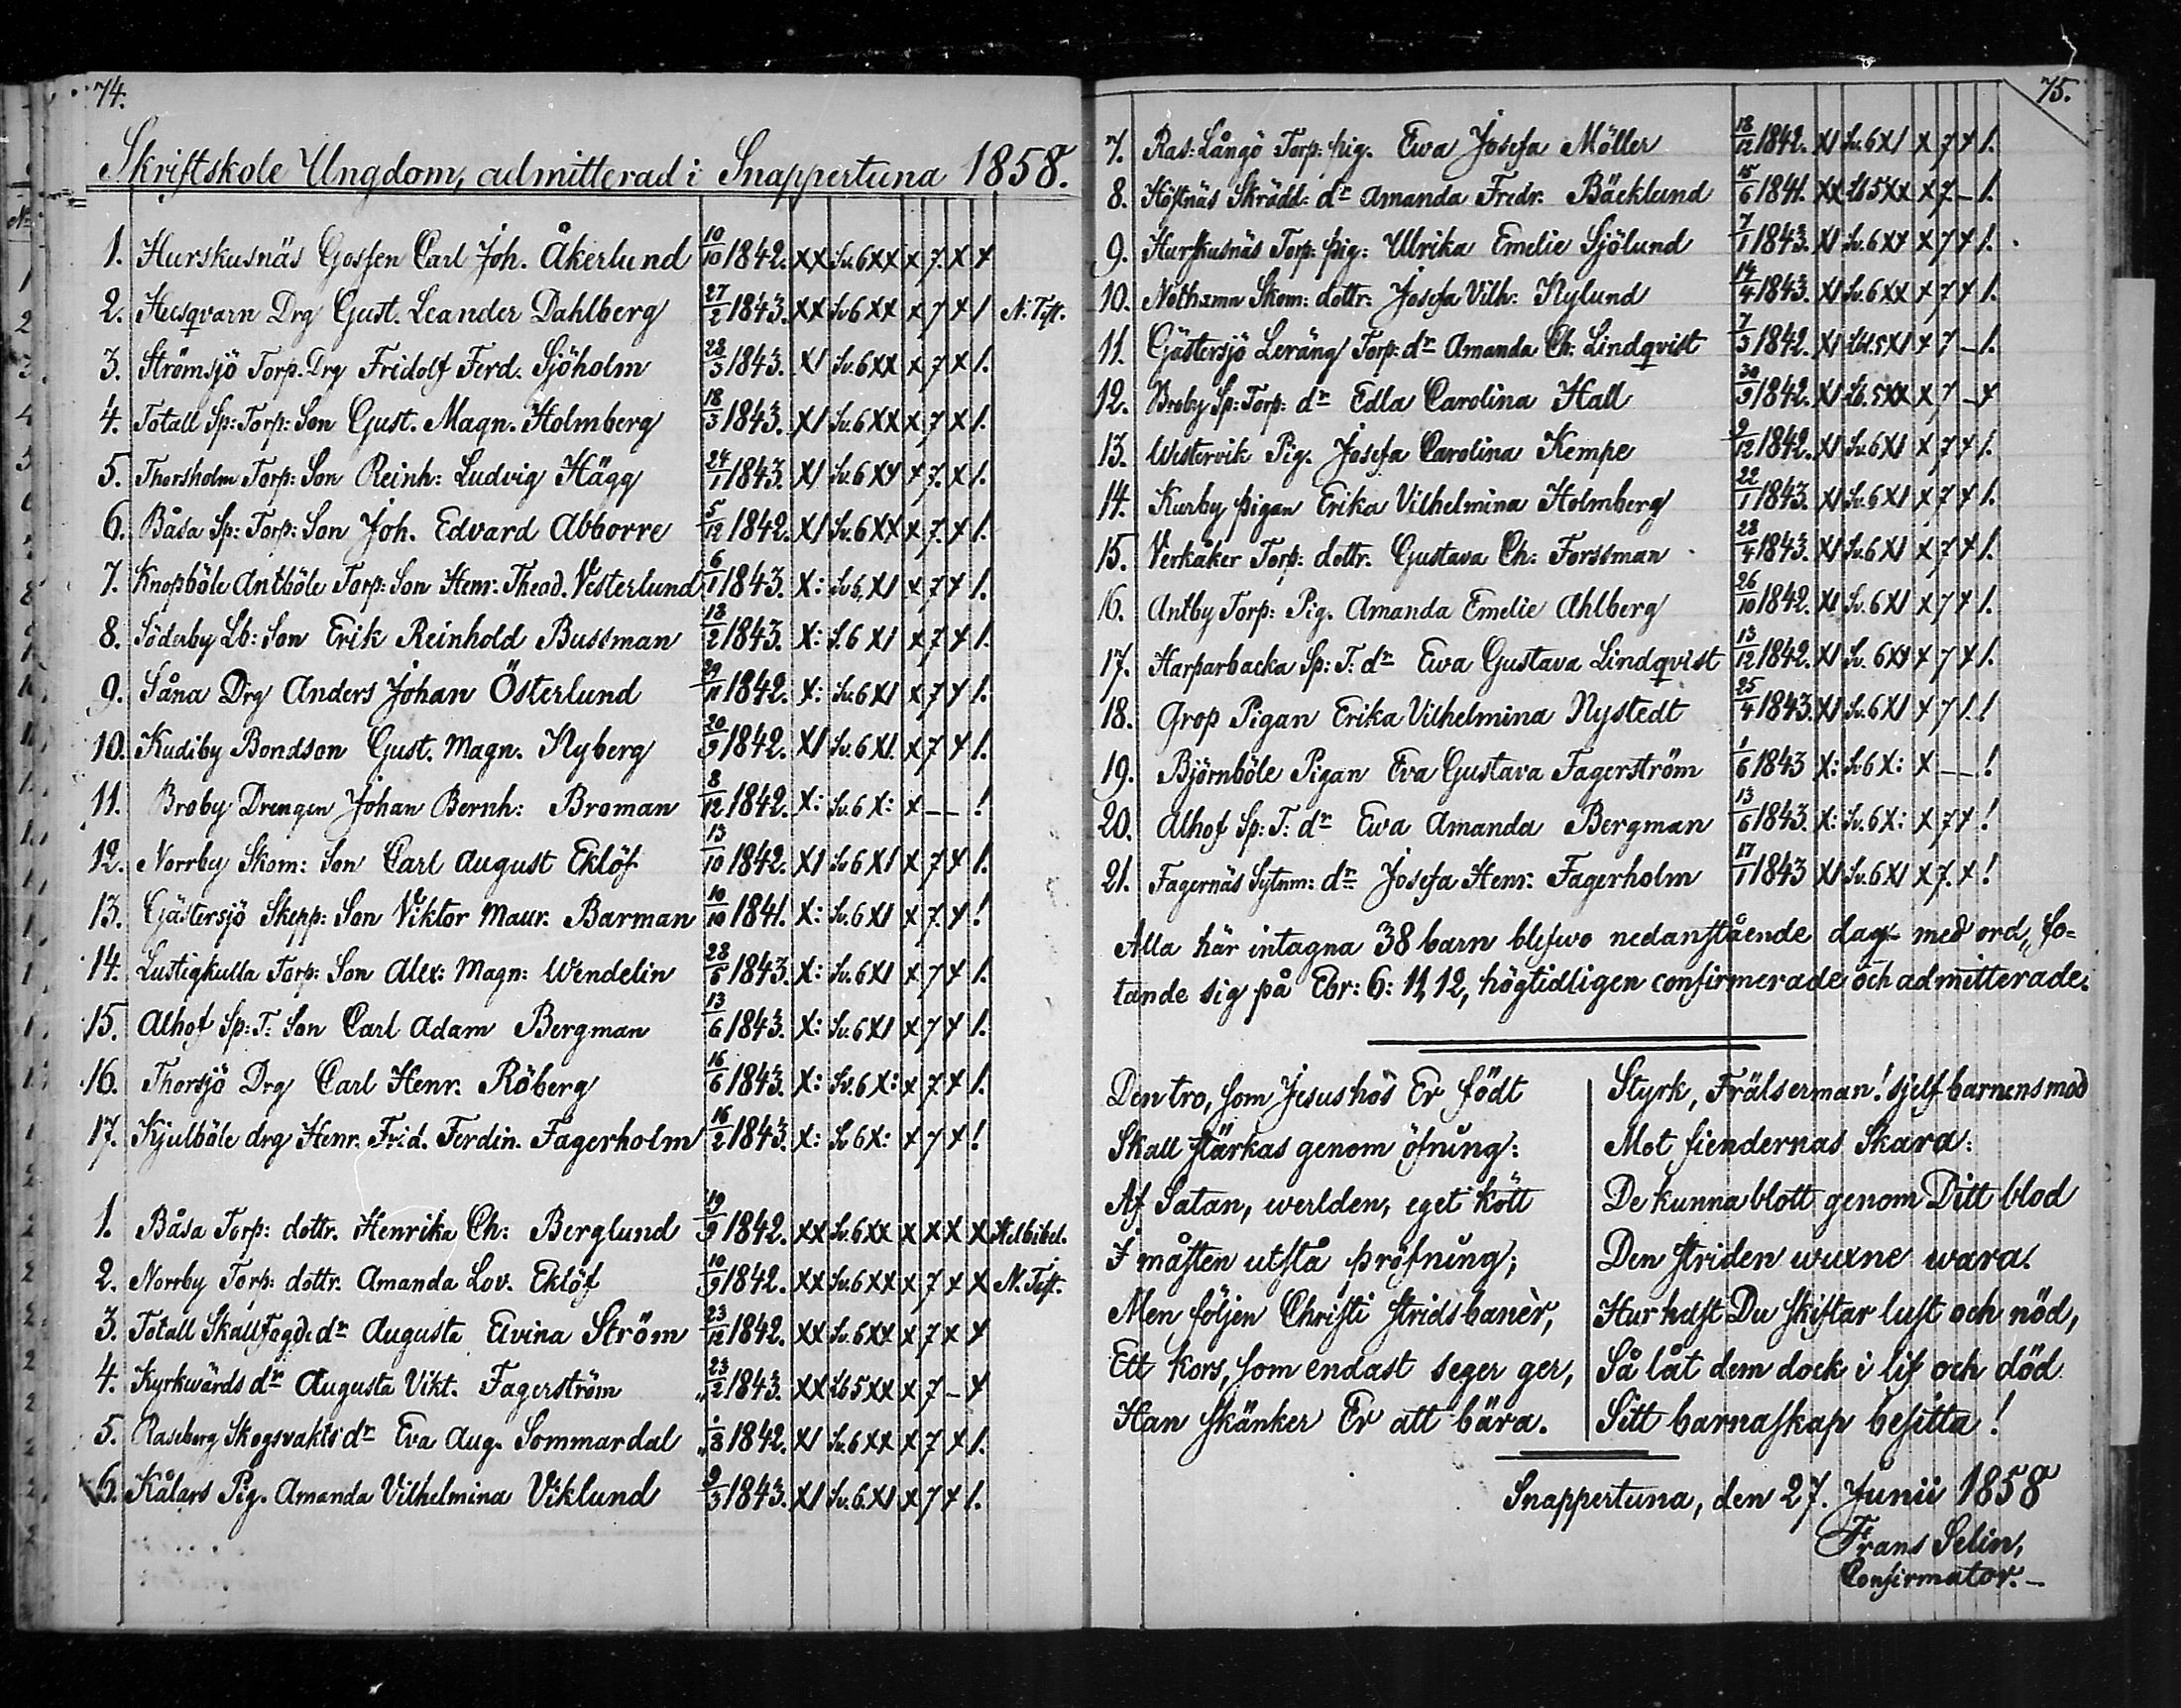 74.
Skriftskole Ungdom, admitterad i Snappertuna 1858.
1. Hurskusnäs Gossen Carl Joh. Åkerlund 10/10 1842. XX Sv. 6 XX x 7. X x
2. Husqvarn Drg Gust. Leander Dahlberg 27/2 1843. XX Sv 6 XX x 7 x 1. N. Test.
3. Strömsjö Torp. Drg Fridolf Ferd. Sjöholm 28/3 1843. X1 Sv. 6 XX x 7 x 1.
4. Totall Sp: Torp: Son Gust. Magn. Holmberg 18/3 1843. X1 Sv. 6 XX x 7 x 1.
5. Thorsholm Torp: Son Reinh: Ludvig Hägg 24/1 1843. X1 Sv. 6 XX x 7. x 1.
6. Båsa Sp: Torp: Son Joh. Edvard Abborre 5/12 1842. X1 Sv. 6 XX x 7. x 1.
7. Knopböle Antböle Torp: Son Henr: Theod. Vesterlund 6/1 1843. X: Sv 6, X1 x 7 x 1.
8. Söderby Lb: Son Erik Reinhold Bussman 18/2 1843. X: S. 6 X1 x 7 x 1.
9. Såna Drg Anders Johan Österlund 29/11 1842. X: Sv. 6 X1 x 7 x 1.
10. Kudiby Bondson Gust. Magn. Nyberg 20/9 1842. X1 Sv. 6 X1. x 7. x 1.
11. Broby Drengen Johan Bernh: Broman 8/12 1842. X: Sv. 6 X: x — — !
12. Norrby Skom: Son Carl August Eklöf 13/10 1842. X1 Sv 6 X1 x 7 x 1.
13. Gästersjö Skepp: Son Viktor Maur. Barman 10/10 1841. X: Sv. 6 X1 x 7. x !
14. Lustigkulla Torp: Son Alex: Magn: Wendelin 28/5 1843. X: Sv. 6 X1 x 7 x 1.
15. Alhof Sp: T: Son Carl Adam Bergman 13/6 1843. X: Sv. 6 X1 x 7 x 1.
16. Thorsjö Drg Carl Henr. Röberg 16/6 1843. X: Sv. 6 X: x 7 x 1.
17. Kjulböle drg Henr. Frid. Ferdin. Fagerholm 16/2 1843. X: Sv 6 X: x 7 x !
1. Båsa Torp: dottr. Henrika Ch: Berglund 19/9 1842. XX Sv. 6 XX x X X X Helbibel.
2. Norrby Torp: dottr. Amanda Lov. Eklöf 10/9 1842. XX Sv. 6 XX x 7 x X N. Test.
3. Totall Skallfogde dr Augusta Elvina Ström 23/12 1842. XX Sv. 6 XX x 7 x x
4. Kyrkwärds dr Augusta Vikt. Fagerström 23/2 1843. XX Lb 5 XX x 7 – x
5. Raseborg Skogsvakts dr Eva Aug. Sommardal 1/8 1842. X1 Sv. 6 XX x 7 x 1.
6. Kålars Pig. Amanda Vilhelmina Viklund 9/3 1843. X1 Sv. 6. X1 x 7 x 1.
75.
7. Ras: Långö Torp: pig. Ewa Josefa Möller 18/12 1842. X1 Sv. 6 X1 x 7 x 1.
8. Höstnäs Skrädd: dr Amanda Fredr. Bäcklund 15/6 1841. XX Lb 5 XX x 7. – 1.
9. Hurskusnäs Torp: pig: Ulrika Emelie Sjölund 7/1 1843. X1 Sv. 6 XX x 7 x 1.
10. Nothamn Skom: dottr. Josefa Vilh: Nylund 14/4 1843. X1 Sv. 6 XX x 7 x 1.
11. Gästersjö Leräng Torp: dr Amanda Ch: Lindqvist 7/3 1842. X1 Lb. 5 X1 x 7 – 1.
12. Broby Sp: Torp: dr Edla Carolina Hall 30/9 1842. X1 Lb. 5 XX x 7 – x
13. Westervik Pig. Josefa Carolina Kempe 9/12 1842. X1 Sv. 6 X1 x 7 x 1.
14. Kurby pigan Erika Vilhelmina Holmberg 22/1 1843. X1 Sv. 6 X1 x 7 x 1.
15. Verkåker Torp: dottr. Gustava Ch: Forssman 28/4 1843. X1 Sv. 6 X1 x 7 x 1.
16. Antby Torp: Pig. Amanda Emelie Ahlberg 26/10 1842. X1 Sv. 6 X1 x 7 x 1.
17. Harparbacka Sp: T: dr Ewa Gustava Lindqvist 13/12 1842. X1 Sv. 6 XX x 7 x 1.
18. Grop Pigan Erika Vilhelmina Nystedt 25/4 1843. X1 Sv. 6 X1 x 7 1. !
19. Björnböle Pigan Eva Gustava Fagerström 1/6 1843 X: Sv 6 X: x — — !
20. Alhof Sp: T: dr Ewa Amanda Bergman 13/6 1843. X: Sv. 6 X: x 7 x !
21. Fagernäs Sytnm: dr Josefa Henr. Fagerholm 17/1 1843 X1 Sv. 6 X1 x 7. x !
Alla här intagna 38 barn blefwo nedanstående dag med ord, fo-
tande sig på Ebr: 6: 11, 12, högtidligen confirmerade och admitterade.
Den tro, som Jesus hos Er födt
Skall stärkas genom öfning:
Af Satan, werlden, eget kött
I måsten utstå pröfning;
Men följen Christi stridsbanèr,
Ett kors, som endast seger ger,
Han skänker Er att bära.
Styrk, Frälserman! sjelf barnens mod
Mot fiendernas Skara:
De kunna blott genom Ditt blod
Den striden wuxne wara.
Hur helst Du skiftar lust och nöd,
Så låt dem dock i lif och död
Sitt barnaskap besitta!
Snappertuna, den 27. Junii 1858
Frans Selin,
Confirmator. –